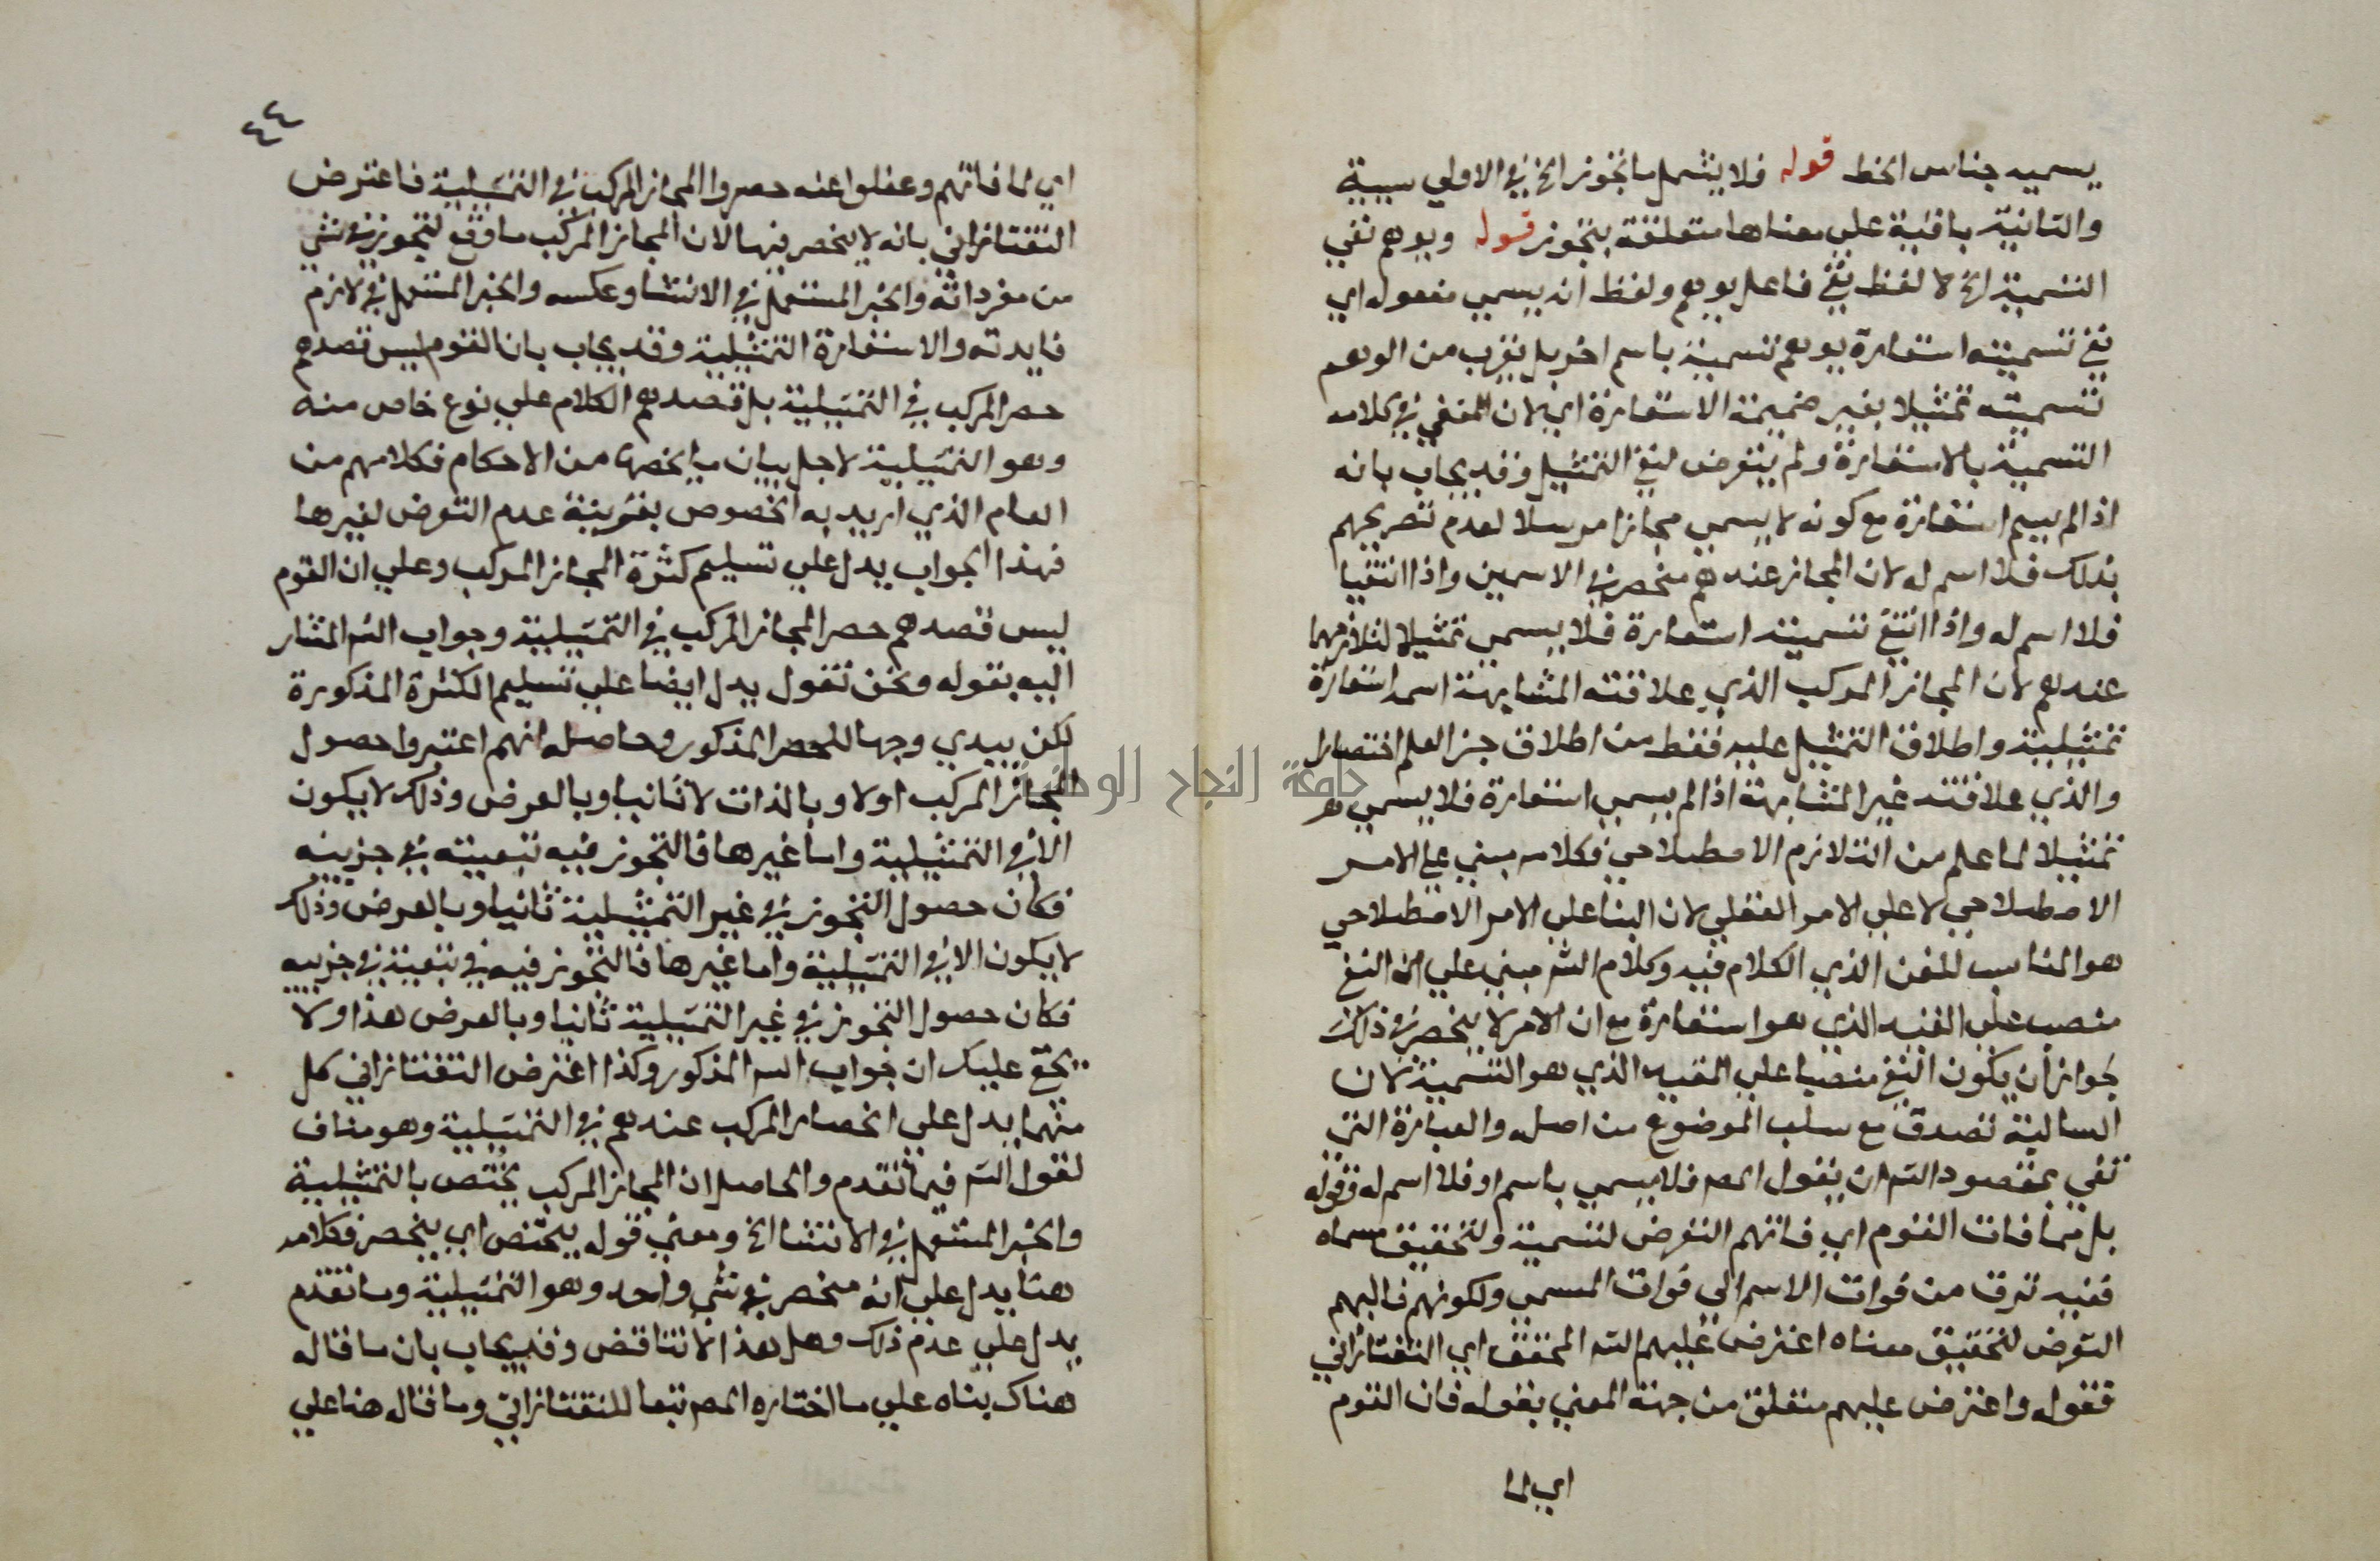 يسميه جناس الخط قوله فلا يشمل ما تجوز الخ في الاولي سببية
والثانية باقية علي معناها متعلقة بتجوز قوله ويوهم نفي
التسمية الخ لا لفظ نفي فاعل يوهم ولفظ انه يسمي مفعوله اي
نفي تسميته استعارة يوهم تسمية باسم اخر بل يقرب من الوهم
تسميته تمثيلا بغير ضميمة الاستعارة اي لان المنفي في كلامه
التسمية بالاستعارة ولم يتعرض لنفي التمثيل وقد يجاب بانه
اذا لم يسم استعارة مع كونه لا يسمي مجازا مرسلا لعدم تصريحهم
بذلك فلا اسم له لان المجاز عندهم منحصر في الاسمين واذا انتفيا
فلا اسم له واذا انتفي تسميته استعارة فلا يسمي تمثيلا لتلازمهما
عندهم لان المجاز المركب الذي علاقته المشابهة اسمه استعارة
تمثيلية واطلاق التمثيل عليه فقط من اطلاق جزء العلم اختصارا
والذي علاقته غير المشابهة اذا لم يسمي استعارة فلا يسمي
تمثيلا لما علم من التلازم الاصطلاحي فكلامه مبني علي الامر
الاصطلاحي لا علي الامر العقلي لان البنا علي الامر الاصطلاحي
هو المناسب للفن الذي الكلام فيه وكلام الشـ مبني علي ان النفي
منصب علي القيد الذي هو استعارة مع ان الامر لا ينحصر في ذلك
لجواز ان يكون النفي منصبا علي المقيد الذي هو التسمية لان
السالبة تصدق مع سلب الموضوع من اصله والعبارة التي
تفي بمقصود الشـ ان يقول المصـ فلا يسمي باسم او فلا اسم له وقوله
بل مما فات القوم اي فاتهم التعرض لتسمية ولتحقيق مسماه
ففيه ترق من فوات الاسم الي فوات المسمي ولكونهم فاتهم
التعرض لتحقيق معناه اعترض عليهم الشـ المحقق اي التفتازاني
فقوله واعترض عليهم متعلق من جهة المعني بقوله فان القوم
اي لما
٤٤
اي لما فاتهم وغفلوا عنه حصروا المجاز المركب في التمثيلية فاعترض
التفتازاني بانه لا ينحصر فيها لان المجاز المركب ما وقع التجوز في شي
من مفرداته والخبر المستعمل في الانشا وعكسه والخبر المستعمل في لازم
فايدته والاستعارة التمثيلية وقد يجاب بان القوم ليس قصدهم
حصر المركب في التمثيلية بل قصدهم الكلام علي نوع خاص منه
وهو التمثيلية لاجل بيان ما يخصها من الاحكام فكلامهم من
العام الذي اريد به الخصوص بقرينة عدم التعرض لغيرها
فهذا الجواب يدل علي تسليم كثرة المجاز المركب وعلي ان القوم
ليس قصدهم حصر المجاز المركب في التمثيلية وجواب الشـ المشار
اليه بقوله ونحن نقول يدل ايضا علي تسليم الكثرة المذكورة
لكن يبدي وجها للحصر المذكور وحاصله انهم اعتبروا حصول
المجاز المركب اولا وبالذات لا ثانيا وبالعرض وذلك لا يكون
الا في التمثيلية واما غيرها فالتجوز فيه تبعيته في جزييه
فكان حصول التجوز في غير التمثيلية ثانيا وبالعرض وذلك
لا يكون الا في التمثيلية واما غيرها فالتجوز فيه في تبعية في جزييه
فكان حصول التجوز في غير التمثيلية ثانيا وبالعرض هذا ولا
يخفي عليك ان جواب الشـ المذكور وكذا اعترض التفتازاني كل
منهما يدل علي انحصار المركب عندهم في التمثيلية وهو مناف
لقول الشـ فيما تقدم والحاصل ان المجاز المركب يختص بالتمثيلية
والخبر المستعمل في الانشا الخ ومعني قوله يختص اي ينحصر فكلامه
هنا يدل علي انه منحصر في شي واحد وهو التمثيلية وما تقدم
يدل علي عدم ذلك وهل هذا الا تناقض وقد يجاب بان ما قاله
هناك بناه علي ما اختاره المصـ تبعا للتفتازاني وما قاله هنا علي
جامعة النجاح الوطنية